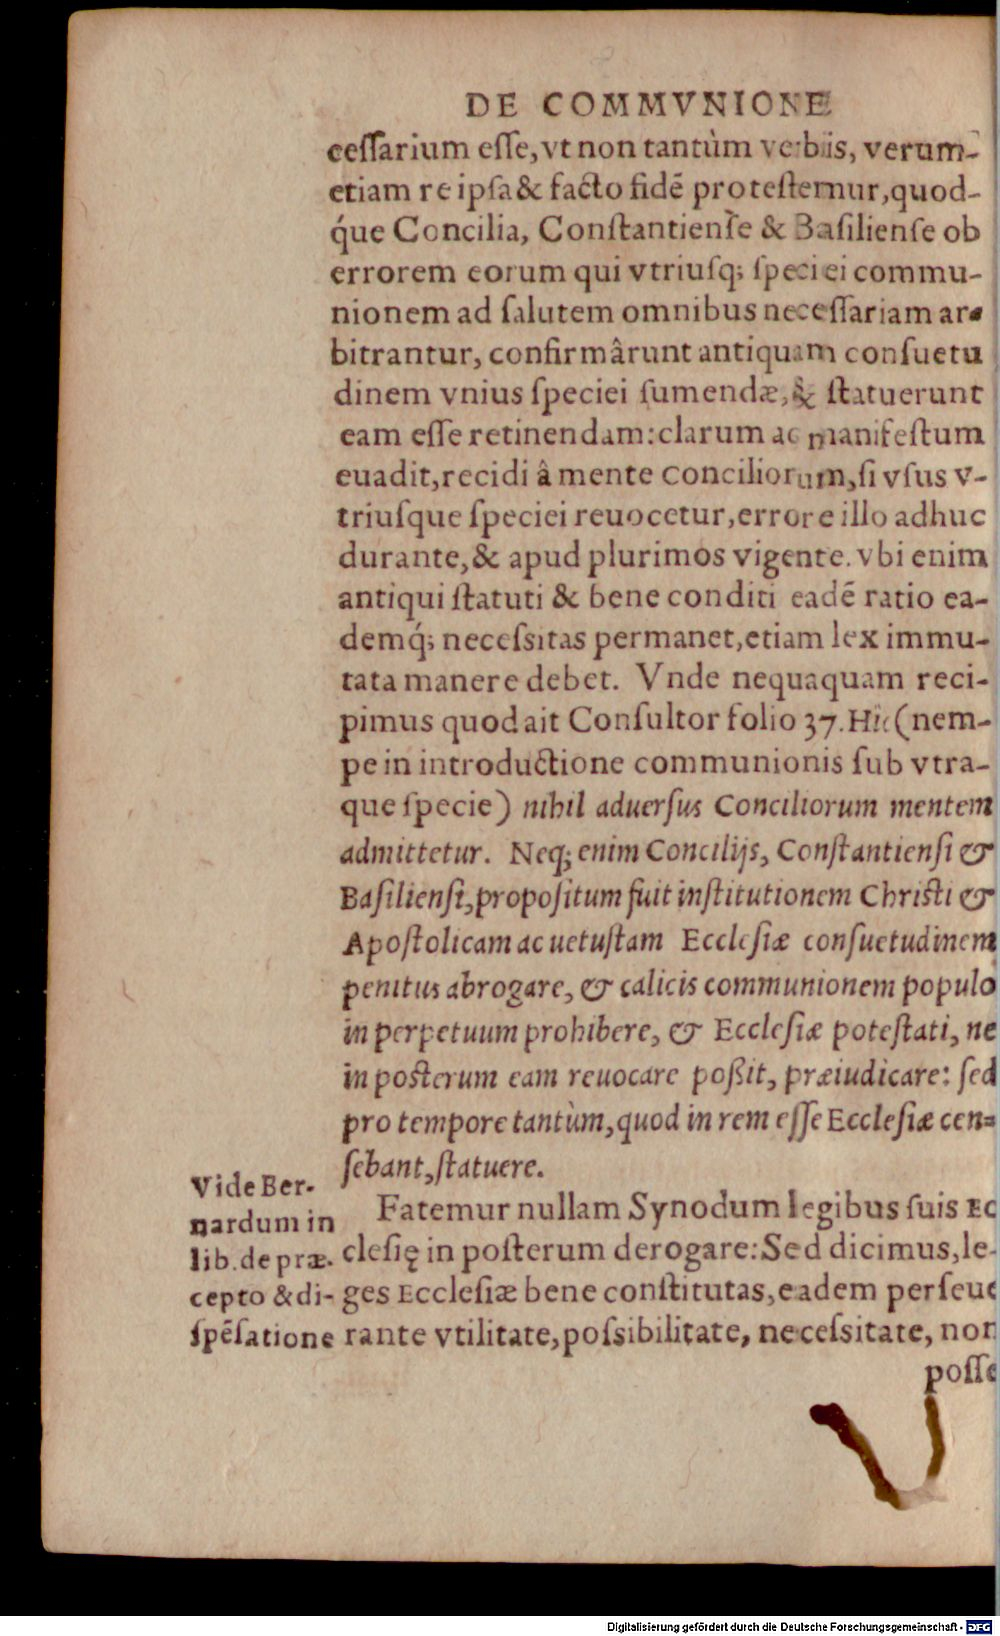 DE COMMVNIONE
ceſſarium eſſe, vt non tantùm verbis, verum-
etiam re ipſa & facto fidē proteſtemur, quod-
q́ue Concilia, Conſtantienſe & Baſilienſe ob
errorem eorum qui vtriuſq; ſpeciei commu-
nionem ad ſalutem omnibus neceſſariam ar-
bitrantur, confirmârunt antiquam conſuetu
dinem vnius ſpeciei ſumendæ, & ſtatuerunt
eam eſſe retinendam: clarum ac manifeſtum
euadit, recidi â mente conciliorum, ſi vſus v-
triuſque ſpeciei reuocetur, errore illo adhuc
durante, & apud plurimos vigente. vbi enim
antiqui ſtatuti & bene conditi eadē ratio ea-
demq́; neceſsitas permanet, etiam lex immu-
tata manere debet. Vnde nequaquam reci-
pimus quod ait Conſultor folio 37. Hîc (nem-
pe in introductione communionis ſub vtra-
que ſpecie) nihil aduerſus Conciliorum mentem
admittetur. Neq; enim Concilijs, Conſtantienſi &
Baſilienſi, propoſitum fuit inſtitutionem Chriſti &
Apoſtolicam ac uetuſtam Eccleſiæ conſuetudinem
penitus abrogare, & calicis communionem populo
in perpetuum prohibere, & Eccleſiæ poteſtati, ne
in poſterum eam reuocare poßit, præiudicare: ſed
pro tempore tantùm, quod in rem eſſe Eccleſiæ cen-
ſebant, ſtatuere.
Fatemur nullam Synodum legibus ſuis Ec
cleſię in poſterum derogare: Sed dicimus, le-
ges Eccleſiæ bene conſtitutas, eadem perſeue
rante vtilitate, poſsibilitate, neceſsitate, non
poſſe
Vide Ber-
nardum in
lib. de præ-
cepto & di-
ſpēſatione
Digitalisierung gefördert durch die Deutsche Forschungsgemeinschaft - DFG